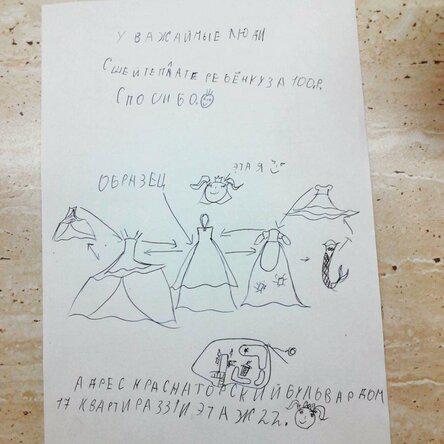 УВАЖАЙМЫЕ ЛЮДИ
СШЕЙТЕПЛАТЕ РЕБЁНКУЗА 100Р.
СПОСИБО.
ЭТА Я
ОБРАЗЕЦ
АДРЕС КРАСНАГОРСКИЙ БУЛЬВАР ДОМ
17 КВАРТИРА 331 И ЭТАЖ 22.